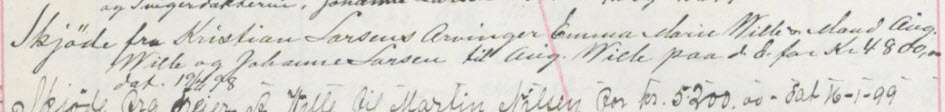 og Svigerdatteren, Johanne
Skjöde fra Kristian Larsens Arvinger Emma Marie Wille & Mand Aug.
Wille og Johanne Larsen til Aug. Wille paa d. E. for Kr 4800,00
dat. 19/4 98
Skjöde fra Wille til Martin Nilsen for kr. 5200.00 - dat 16-1-99